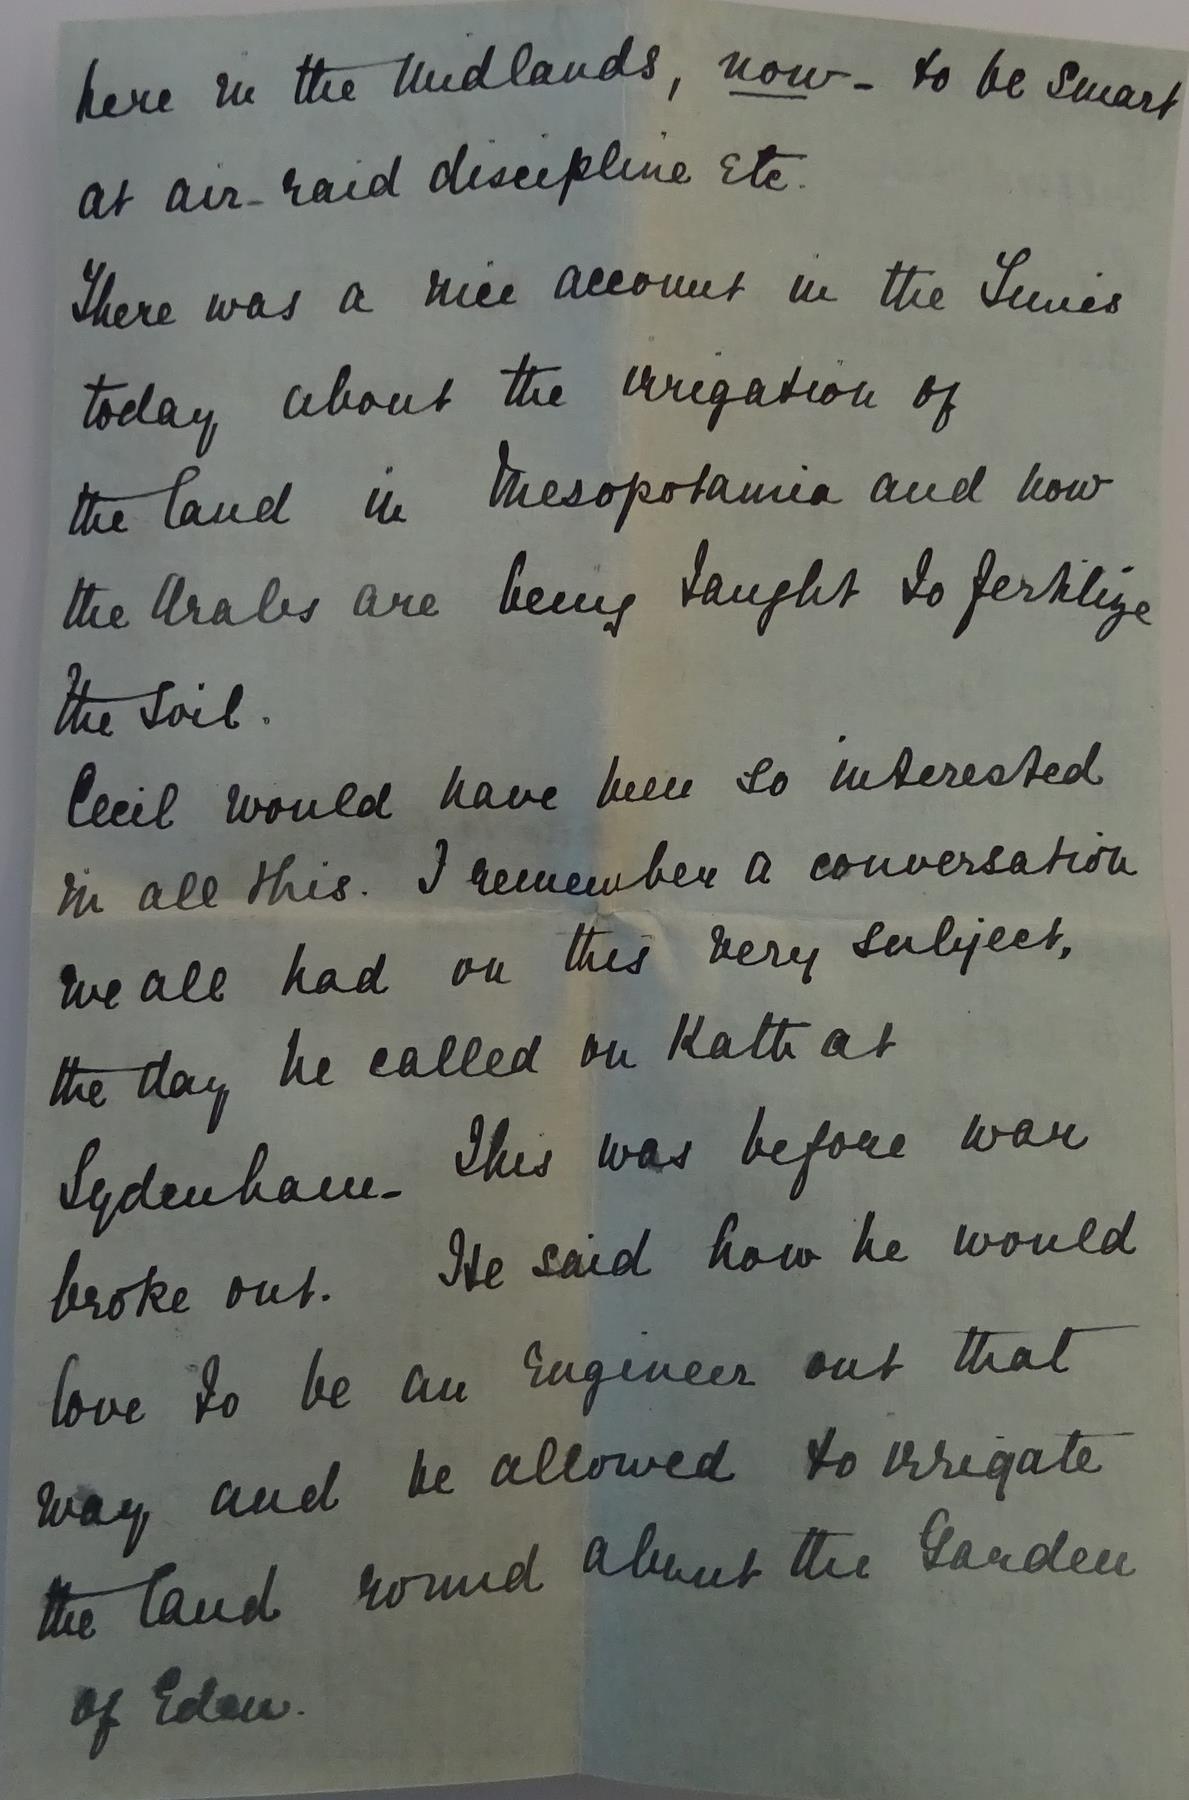 here in the Midlands, now - to be smart
at air-raid discipline etc.
There was a nice account in the Times
today about the irrigation of
the land in Mesopotamia and how
the Arabs are being taught to fertilize
the soil.
Cecil would have been so interested
in all this. I remember a conversation
we all had on this very subject,
the day he called on Kath at
Sydenham - This was before war
broke out. He said how he would
love to be an Engineer out that
way and be allowed to irrigate
the land round about the Garden
of Eden.